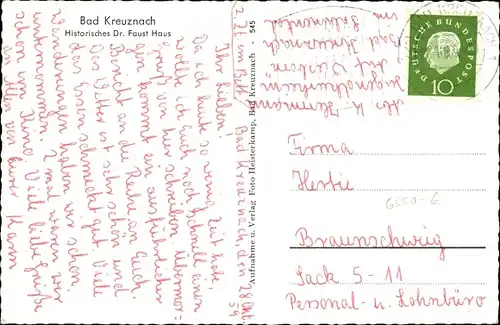 Bad Kreuznach
Historisches Dr. Faust Haus
Bad Kreuznach, den 28. Okt. 59
Ihr Lieben.
Da ich heute so wenig Zeit habe
wollte ich Euch noch schnell einen
Gruß von hier schreiben. Übermorgen
kommt ein ausführlicher
Bericht an die Reihe an Euch.
Das Wetter ist sehr schön und
das Essen schmeckt gut. Viele
Wanderungen haben wir schon
unternommen. 2 mal waren wir
schon im Kino. Viele liebe Grüße
an Alle von Eurer Karin
545
Aufnahme u. Verlag Foto Heisterkamp, Bad Kreuznach
Abs. K. Hermann
Jugendherberge
Bad Kreuznach
DEUTSCHE BUNDESPOST
10
Firma
Hertie
6550-6
Braunschweig
Sack 5-11
Personal- u. Lohnbüro